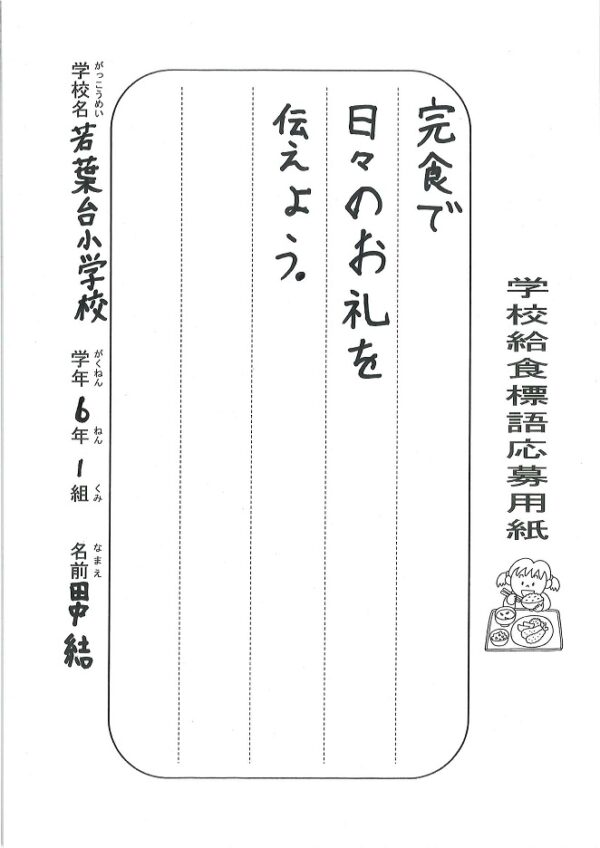 学校給食標語応募用紙
完食で
日々のお礼を
伝えよう。
学校名 若葉台小学校 学年 6年 1組 名前 田中 結
がっこうめい がくねん ねん くみ なまえ